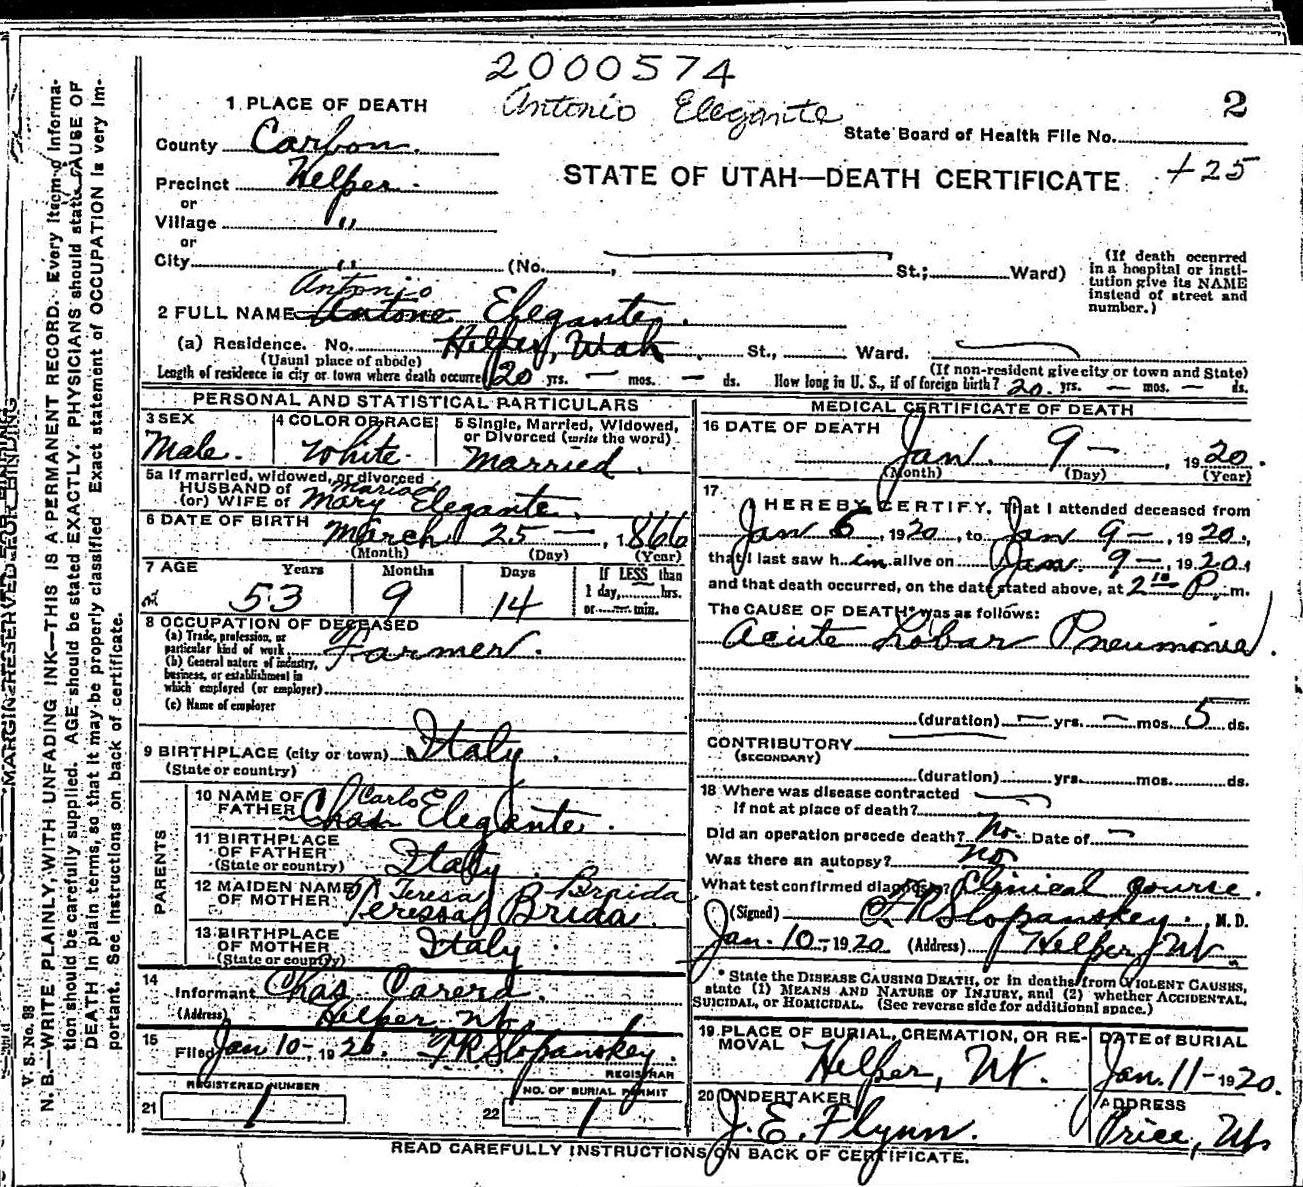 2000574
Antonio Elegante
2
1 PLACE OF DEATH
State Board of Health File No.
County Carbon.
STATE OF UTAH—DEATH CERTIFICATE +25
Precinct Helper.
or
Village "
or
City " (No. , St.; Ward)
(If death occurred in a hospital or institution give its NAME instead of street and number.)
Antonio
2 FULL NAME Antone Elegante.
(a) Residence. No. Helper, Utah. St., Ward.
(Usual place of abode) (If non-resident give city or town and State)
Length of residence in city or town where death occurred 20 yrs. — mos. — ds. How long in U. S., if of foreign birth? 20 yrs. — mos. — ds.
PERSONAL AND STATISTICAL PARTICULARS
3 SEX Male.
4 COLOR OR RACE White.
5 Single, Married, Widowed, or Divorced (write the word) Married.
5a If married, widowed, or divorced
HUSBAND of Maria
(or) WIFE of Mary Elegante.
6 DATE OF BIRTH March 25 — , 1866
(Month) (Day) (Year)
7 AGE Years Months Days If LESS than
53 9 14 1 day, hrs.
or min.
8 OCCUPATION OF DECEASED
(a) Trade, profession, or particular kind of work Farmer.
(b) General nature of industry, business, or establishment in which employed (or employer)
(c) Name of employer
9 BIRTHPLACE (city or town) Italy.
(State or country)
PARENTS
10 NAME OF FATHER Carlo Chas. Elegante.
11 BIRTHPLACE OF FATHER Italy.
(State or country)
12 MAIDEN NAME OF MOTHER Teresa Braida
Teressa Brida.
13 BIRTHPLACE OF MOTHER Italy
(State or country)
14 Informant Chas. Carera.
(Address) Helper, Ut.
15 Filed Jan 10-, 1920. F R Slopanskey.
REGISTRAR
REGISTERED NUMBER
21 1
NO. OF BURIAL PERMIT
22 1
MEDICAL CERTIFICATE OF DEATH
16 DATE OF DEATH Jan. 9 — , 1920.
(Month) (Day) (Year)
17 I HEREBY CERTIFY, That I attended deceased from
Jan 6, 1920, to Jan 9 —, 1920.,
that I last saw h im alive on Jan 9 —, 1920.,
and that death occurred, on the date stated above, at 2 10 P. m.
The CAUSE OF DEATH* was as follows:
Acute Lobar Pneumonia.
(duration) — yrs. — mos. 5 ds.
CONTRIBUTORY
(SECONDARY)
(duration) yrs. mos. ds.
18 Where was disease contracted
If not at place of death?
Did an operation precede death? No. Date of —
Was there an autopsy? No
What test confirmed diagnosis? Clinical Course.
(Signed) F R Slopanskey. M. D.
Jan. 10 -, 1920 (Address) Helper, Ut.
* State the DISEASE CAUSING DEATH, or in deaths from VIOLENT CAUSES, state (1) MEANS AND NATURE OF INJURY, and (2) whether ACCIDENTAL, SUICIDAL, or HOMICIDAL. (See reverse side for additional space.)
19 PLACE OF BURIAL, CREMATION, OR REMOVAL Helper, Ut.
DATE of BURIAL Jan. 11 - 1920.
20 UNDERTAKER J. E. Flynn.
ADDRESS Price, Ut
READ CAREFULLY INSTRUCTIONS ON BACK OF CERTIFICATE.
MARGIN RESERVED FOR BINDING
V. S. No. 98
N. B.—WRITE PLAINLY, WITH UNFADING INK—THIS IS A PERMANENT RECORD. Every item of information should be carefully supplied. AGE should be stated EXACTLY. PHYSICIANS should state CAUSE OF DEATH in plain terms, so that it may be properly classified. Exact statement of OCCUPATION is very important. See instructions on back of certificate.